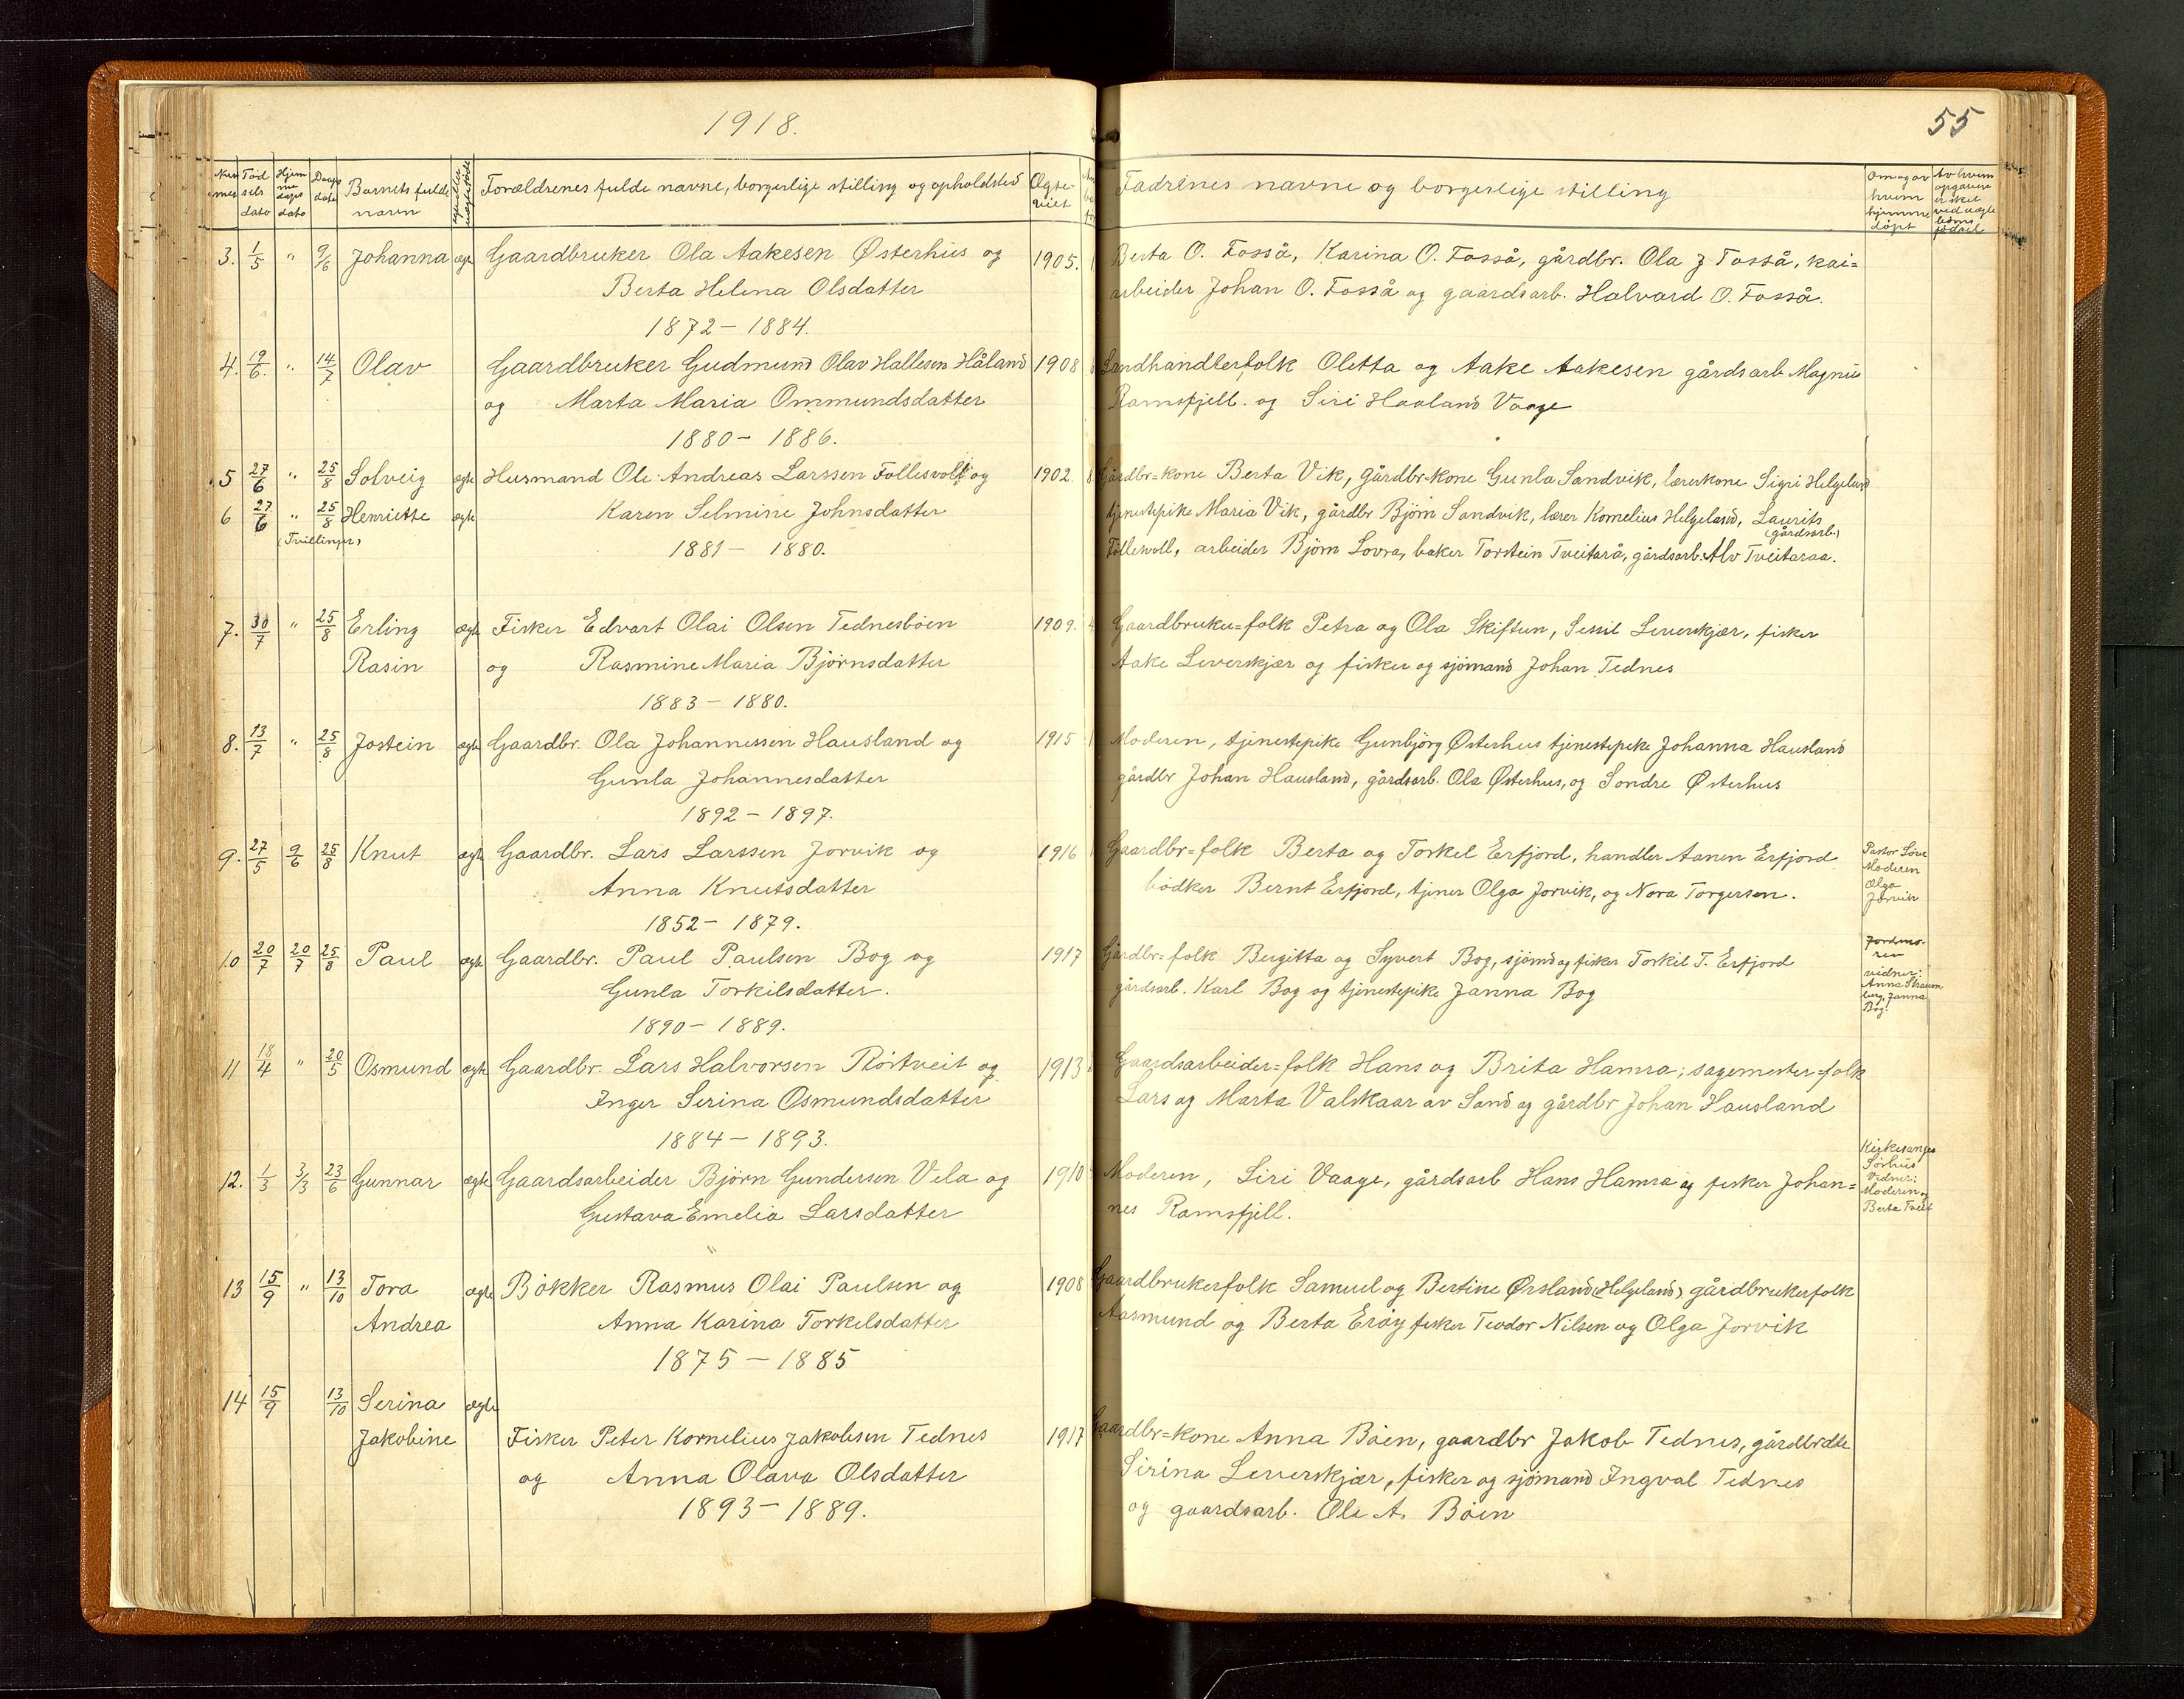 1918.
55
Fødselsdato
Hjemmedøpsdato
Daapsdato
Barnets fulde navn
Forældrenes fulde navne, borgerlige stilling og opholdsted
Ægteviet
Fadrenes navne og borgerlige stilling
Om og av hvem hjemmedøpt
3. 1/5 " 9/6 Johanna ægte Gaardbruker Ola Aakesen Østerhus og 1905. Berta O. Fosså, Karina O. Fosså, gårdbr. Ola J Fosså, kai=
Berta Helena Olsdatter arbeider Johan O. Fosså og gaardsarb. Halvard O. Fosså.
1872 - 1884.
4. 19/6. " 14/7 Olav Gaardbruker Gudmund Olav Hallesen Håland 1908 Landhandlerfolk Oletta og Aake Aakesen gårdsarb Magnus
og Marta Maria Ommundsdatter Ramsfjell. og Siri Haaland Vaage
1880 - 1886.
5 27/6 " 25/8 Solveig ægte Husmand Ole Andreas Larssen Føllesvoll og 1902. Gårdbr=kone Berta Vik, gårdbr-kone Gunla Sandvik, lærerkone Sigri Helgeland
6 27/6 " 25/8 Henriette ægte Karen Selmine Johnsdatter tjenestepike Maria Vik, gårdbr Bjørn Sandvik, lærer Kornelius Helgeland, Laurits
(Tvillinger) (gårdsarb.)
1881 - 1880. Føllesvoll, arbeider Bjørn Lovra, baker Torstein Tveitarå, gårdsarb. Alv Tveitaraa.
7. 30/7 " 25/8 Erling ægte Fisker Edvart Olai Olsen Tednesbøen 1909. Gaardbruker=folk Petra og Ola Skiftun, Sessil Leverskjær, fisker
Rasin og Rasmine Maria Bjørnsdatter Aake Leverskjær og fisker og sjömand Johan Tednes
1883 - 1880.
8. 13/7 " 25/8 Jostein ægte Gaardbr. Ola Johannessen Hausland og 1915 Moderen, tjenestepike Gunbjørg Østerhus tjenestepike Johanna Hausland
Gunla Johannesdatter gårdbr Johan Hausland, gårdsarb. Ola Østerhus, og Sondre Østerhus
1892 - 1897.
9. 27/5 9/6 25/8 Knut ægte Gaardbr. Lars Larssen Jorvik og 1916 Gaardbr=folk Berta og Torkel Erfjord, handler Aanen Erfjord Pastor Löve
Moderen
Anna Knutsdatter bödker Bernt Erfjord, tjener Olga Jorvik, og Nora Torgersen. Olga
Jorvik
1852 - 1879.
10 20/7 20/7 25/8 Paul ægte Gaardbr. Paul Paulsen Bog og 1917 Gårdbr=folk Birgitta og Syvert Bog, sjömd og fisker Torkil T. Erfjord Jordmo-
ren
vidner:
Gunla Torkilsdatter. gårdsarb. Karl Bog og tjenestepike Janna Bog Anna Straum
berg, Janna
Bog.
1890 - 1889.
11 18/4 " 20/5 Osmund ægte Gaardbr. Lars Halvorsen Rörtveit og 1913 Gaardsarbeider=folk Hans og Brita Hamra; sagemester=folk
Inger Serina Osmundsdatter Lars og Marta Valskaar av Sand og gårdbr Johan Hausland
1884 - 1893.
12. 1/3 3/3 23/6 Gunnar ægte Gaardsarbeider Björn Gundersen Vela og 1910 Moderen, Siri Vaage, gårdsarb Hans Hamra og fisker Johan= Kirkesanger
Sørhus
Vidner:
Gustava Emelia Larsdatter nes Ramsfjell. Moderen og
Berta Tveit
13 15/9 " 13/10 Tora ægte Bökker Rasmus Olai Paulsen og 1908 Gaardbrukerfolk Samuel og Bertine Ørsland (Helgeland) gårdbrukerfolk
Andrea Anna Karina Torkelsdatter Aasmund og Berta Eröy fisker Teodor Nilsen og Olga Jorvik
1875 - 1885
14 15/9 13/10 Serina ægte
Jakobine Fisker Peter Kornelius Jakobsen Tednes 1917 Gaardbr=kone Anna Böen, gaardbr Jakob Tednes, gårdbrdtr
og Anna Olava Olsdatter Sirina Leverskjær, fisker og sjömand Ingval Tednes
1893 - 1889. og gaardsarb. Ole A. Böen